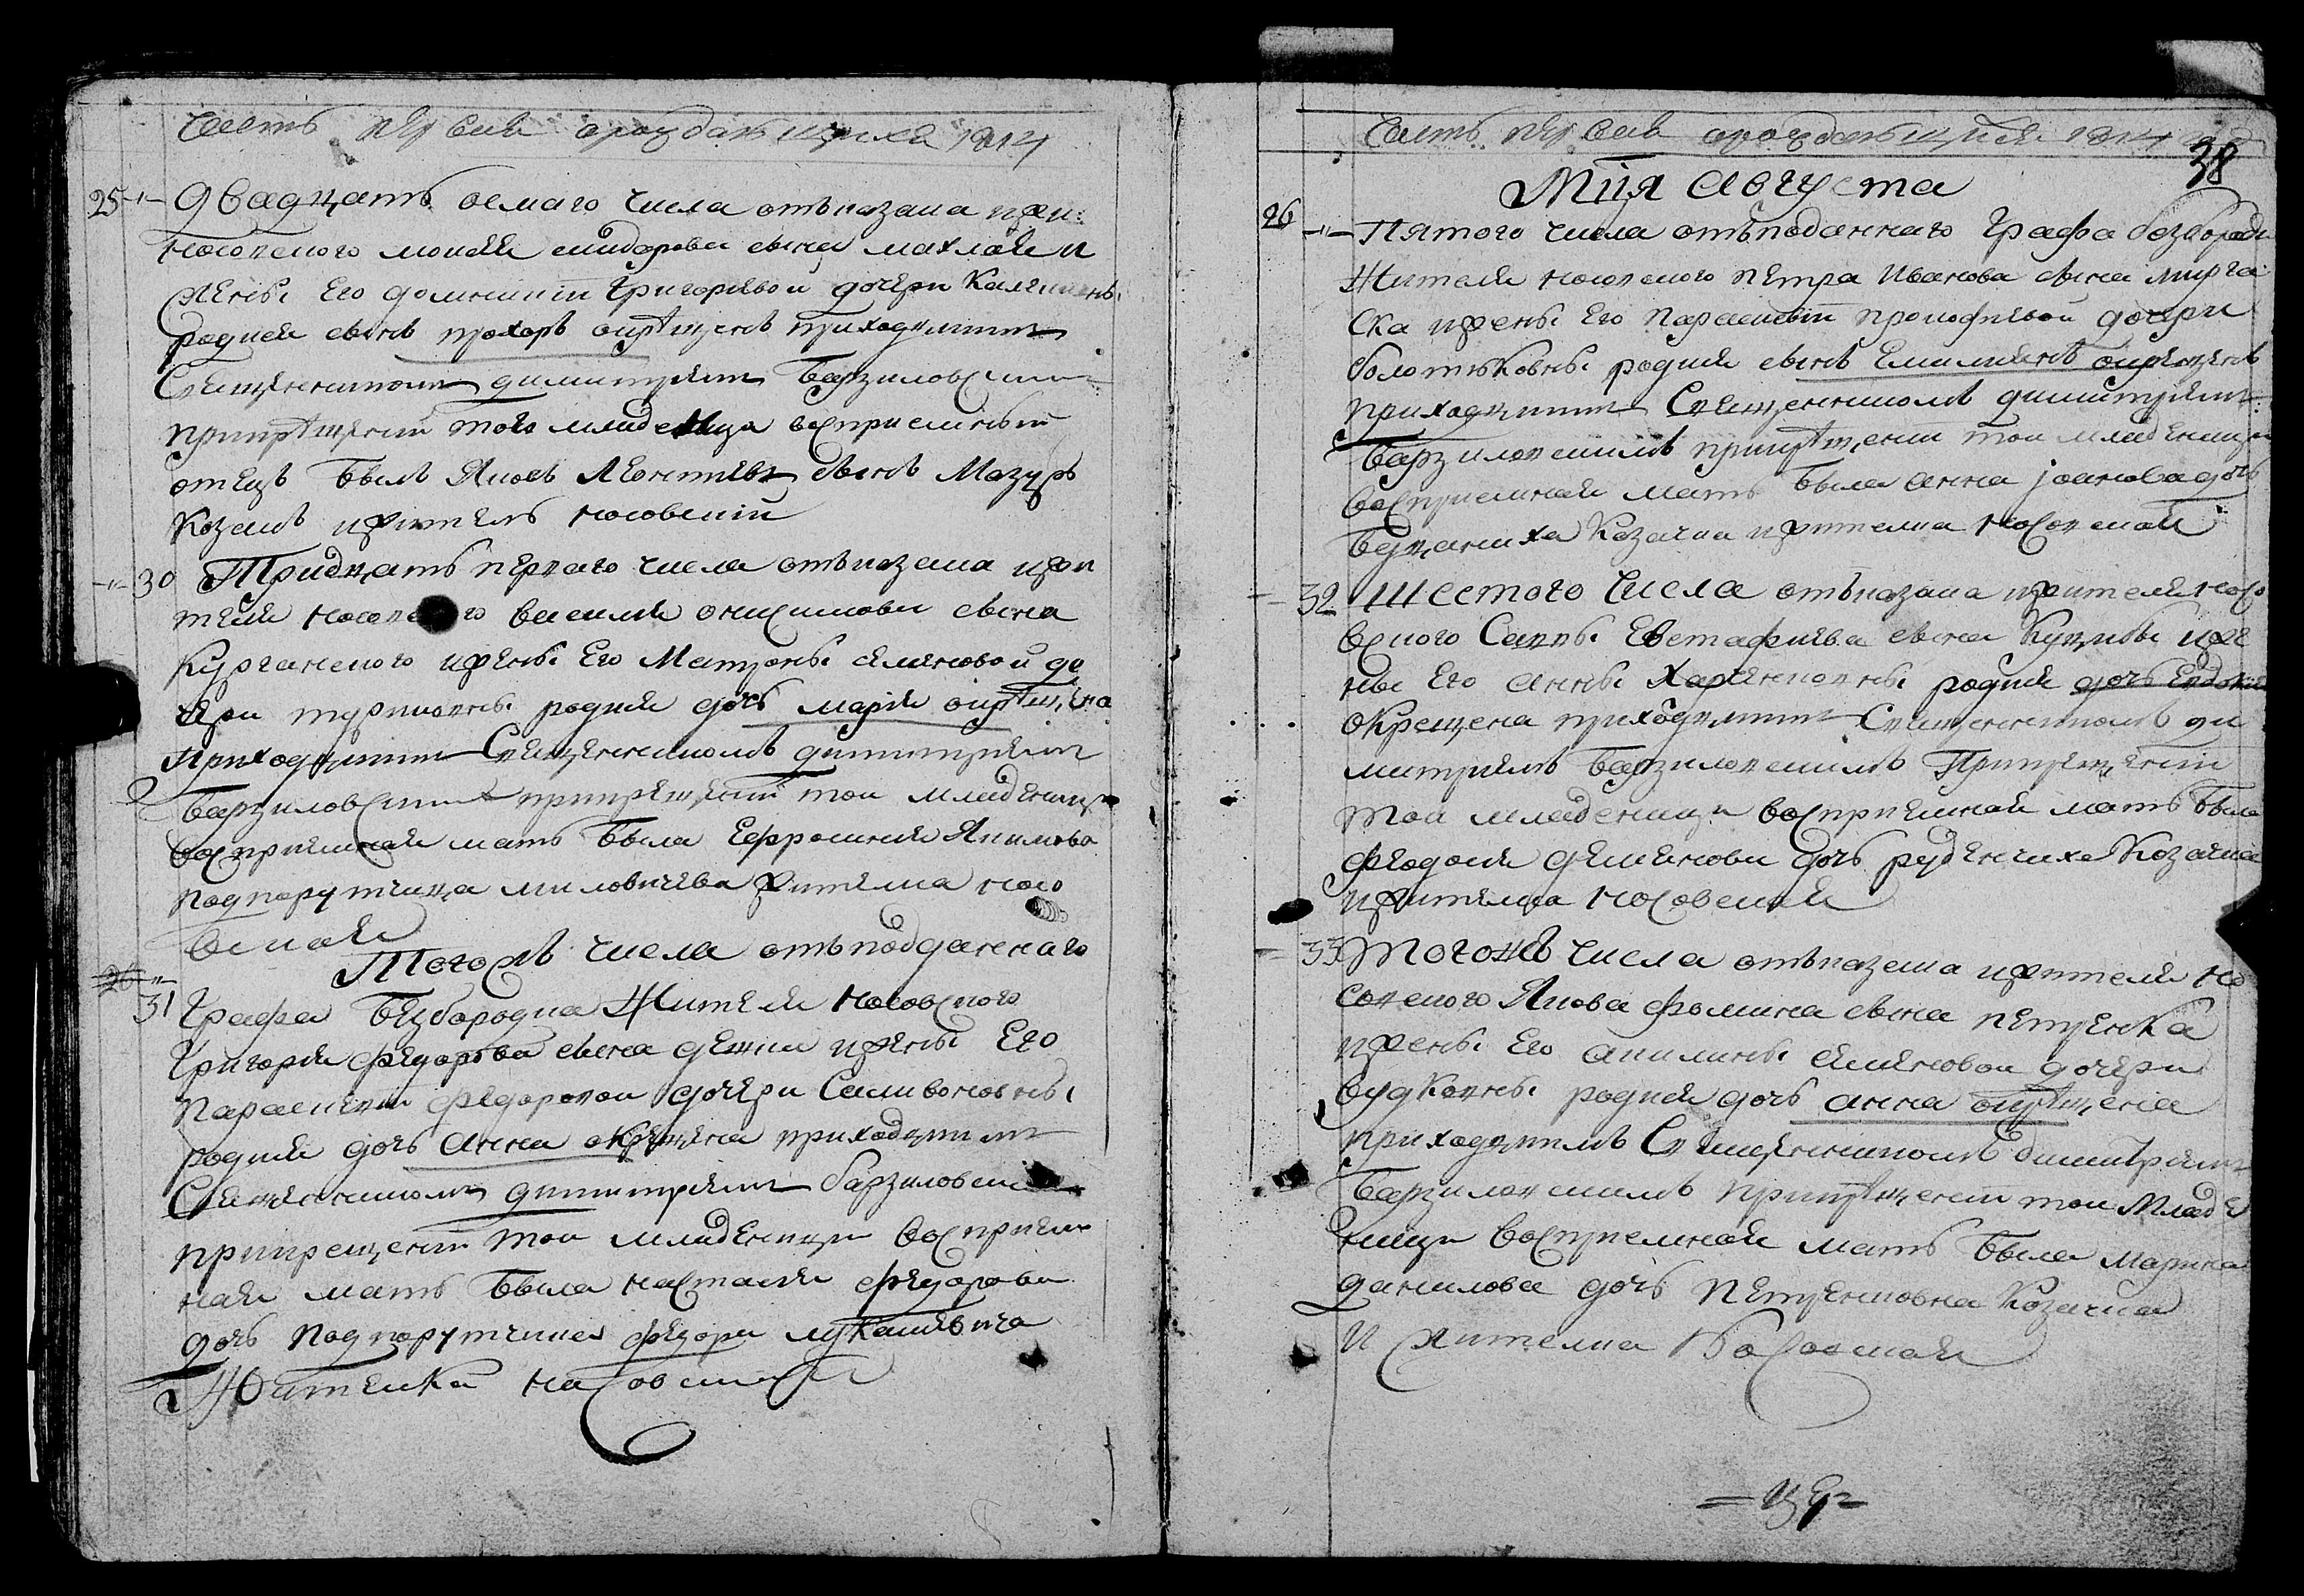 Часть первая ораждающихся 1814
25 Двадцать осмаго числа отъ козака и жи:
носовского моисея сидорова сына махлая и
жены Его домникии Григориевои дочери
родися сынъ прохоръ окрѣщенъ приходскимъ
Священникомъ димитриемъ Барзиловскимъ
прикрѣщении того младенца восприемныи
отецъ былъ Яковъ Леонтиевъ сынъ Мазуръ
Козакъ ижитель носовский
30 Тридцать перваго числа отъ козака ижи
теля носовского василия онисимова сына
Курганского ижены Его Матроны семеновой до
чери родися дочь мария окрѣщена
Приходскимъ Священникомъ димитриемъ
Барзиловскимъ прикрещении тои младеницы
восприемная мать была Ефросиния Якимова
подпорутчица миловичева жителка носо
вская
Тогожъ числа отъ подданнаго
31 Графа Безбородка Жителя носовского
Григория федорова сына ижены Его
параскевии федоровои дочери Саливоновны
родися дочь анна окрещена приходскимъ
Священникомъ димитриемъ барзиловским
прикрещении тои младеницы восприем
ная мать была настасия федорова
дочь подпорутчика федора лукашевича
Жителка насовская
Часть первая ораждающихся 1814
38
Мця августа
26 Пятого числа отъ подданнаго Графа безбородка
Жителя носовского петра Иванова сына мирга
ска ижены Его параскевии прокофиевои дочери
болотьковны родися сынъ Емилиянъ окрещенъ
приходскимъ Священникомъ димитриемъ
Барзиловскимъ прикрѣщении тои младеницы
восприемная мать была анна іоанова дочь
Козачка ижителка носовская
32 Шестого Числа отъ козака ижителя носо
вского Саввы Евстафиева сына Куцивы иже
ны Его анны Харитоновны родися дочь Евдокия
окрещена приходскимъ Священникомъ ди
митриемъ Барзиловскимъ Прикрещении
тои младеницы восприемная мать была
феодосия семенова дочь руденчиха Козачка
ижителка носовская
33 Тогожъ числа отъ козака ижителя но
совского Якова фомина сына петренка
ижены Его акилины семеновои дочери
будковны родися дочь анна окрѣщена
приходскимъ Священникомъ димитриемъ
Барзиловскимъ прикрѣщении тои младе
ницы восприемная мать была марина
данилова дочь петренковна Козачка
и жителка Носовская